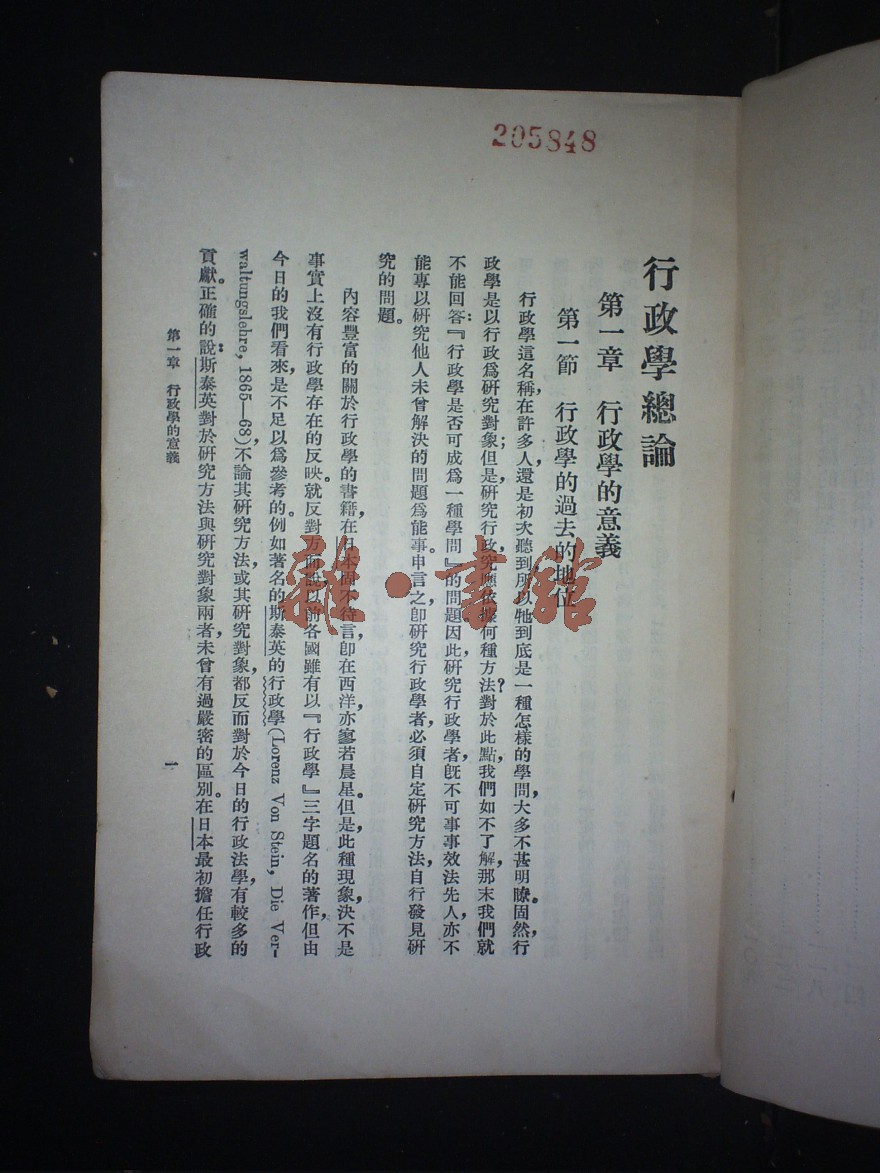 205848
行政學總論
第一章　行政學的意義
第一節　行政學的過去的地位
行政學這名稱，在許多人，還是初次聽到，所以牠到底是一種怎樣的學問，大多不甚明瞭。固然，行
政學是以行政爲研究對象；但是，研究行政，究應依據何種方法？對於此點，我們如不了解，那末我們就
不能回答：『行政學是否可成爲一種學問』的問題。因此，研究行政學者，旣不可事事效法先人，亦不
能專以研究他人未曾解決的問題爲能事。申言之，卽研究行政學者，必須自定研究方法，自行發見研
究的問題。
內容豐富的關於行政學的書籍，在日本固不待言，卽在西洋，亦寥若晨星。但是，此種現象，決不是
事實上沒有行政學存在的反映。就反對方面說，以前各國雖有以『行政學』三字題名的著作，但由
今日的我們看來，是不足以爲參考的。例如著名的斯泰英的行政學 (Lorenz Von Stein, Die Ver-
waltungslehre, 1865—68)，不論其研究方法，或其研究對象，都反而對於今日的行政法學，有較多的
貢獻。正確的說：斯泰英對於研究方法與研究對象兩者，未曾有過嚴密的區別。在日本最初擔任行政
第一章　行政學的意義
一
雜·書館